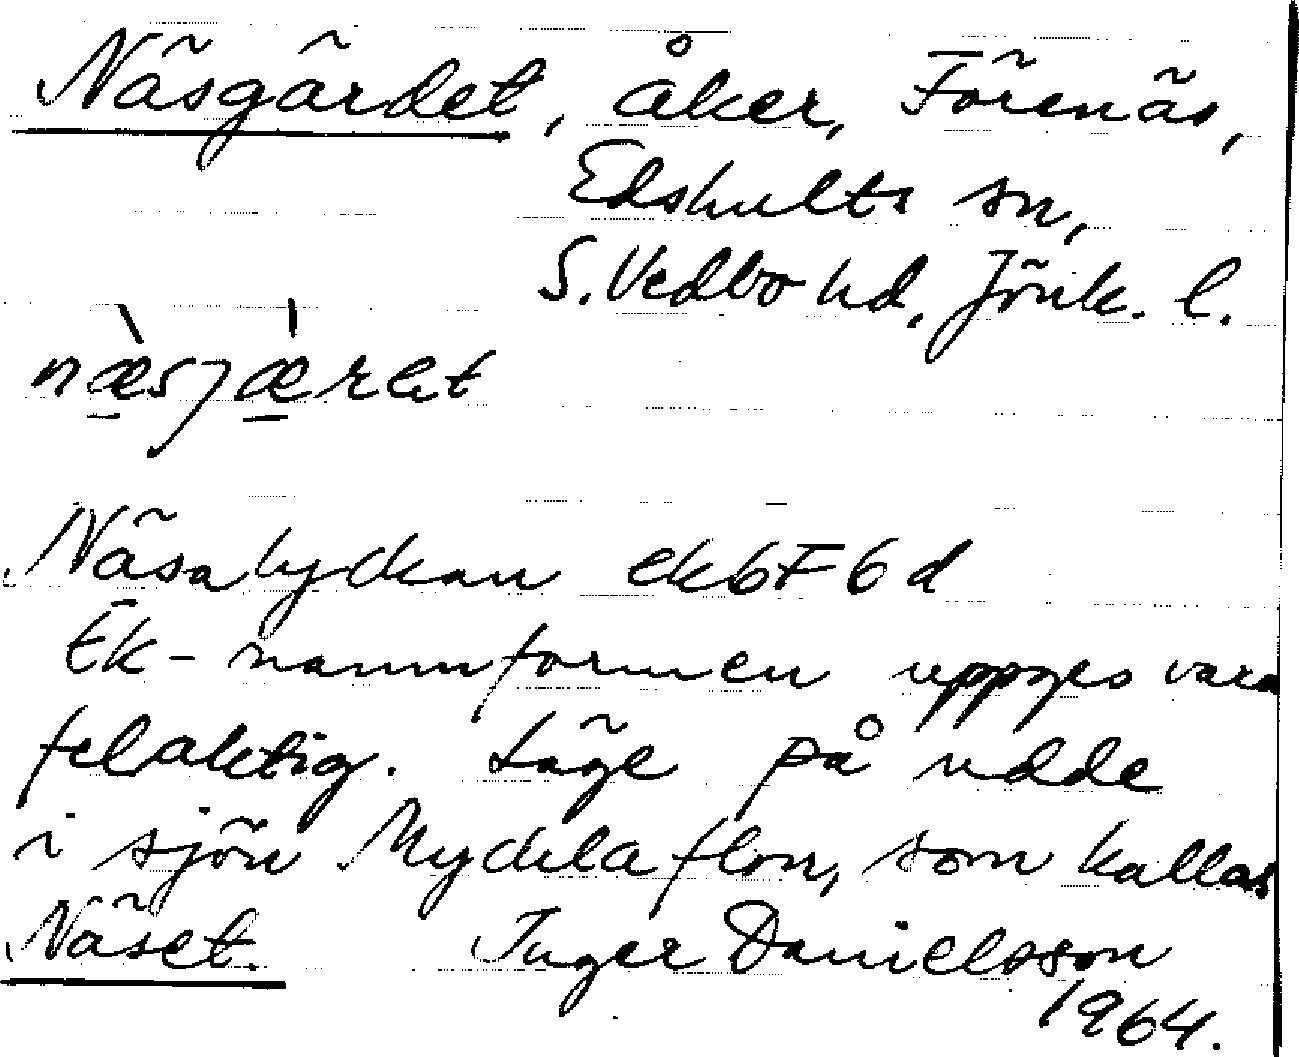 Näsgärdet, åker, Förenäs,
Edshults sn,
S. Vedbo hd, Jönk. l.
næ̀sjæret
Näsalyckan ek6F6d
Ek-namnformen uppges vara
felaktig. Läge på udde
i sjön Mycklaflon, som kallas
Näset. Inger Danielsson
1964.